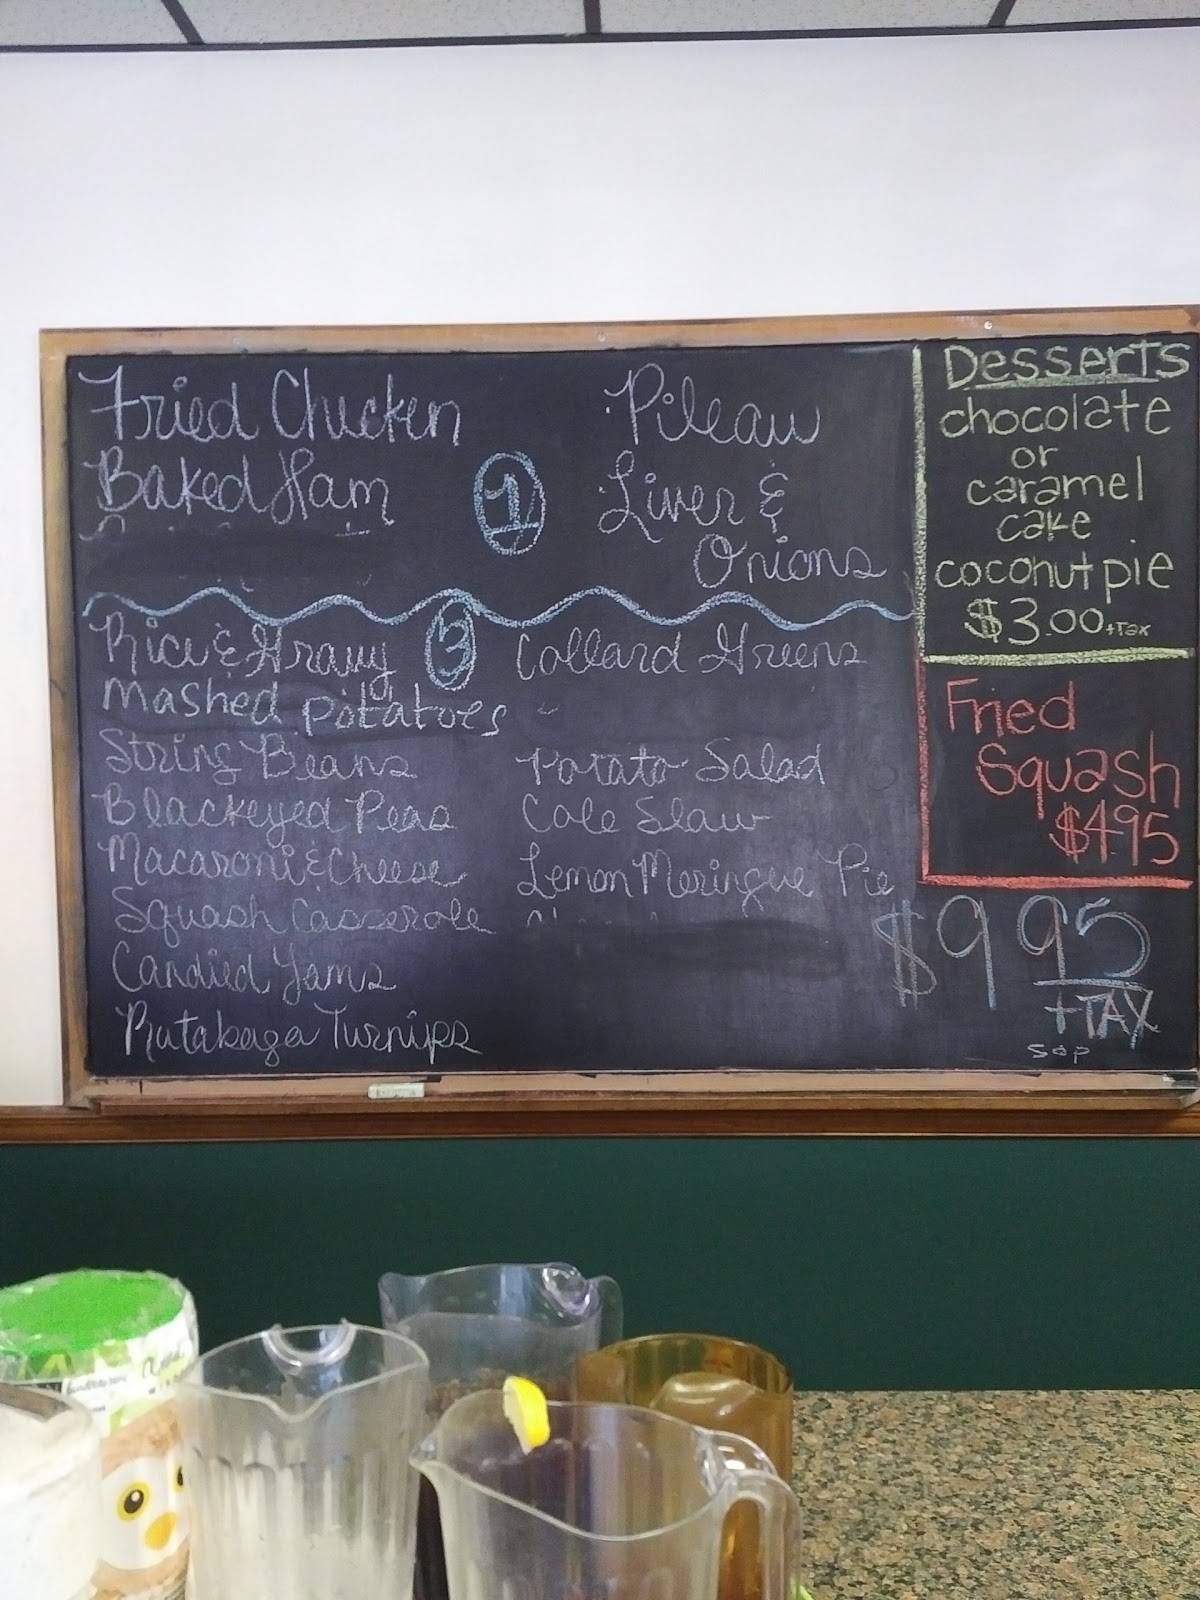 Fried Chicken
Baked Ham
1
Pileau
Liver &
Onions
Rice & Gravy
mashed potatoes
String Beans
Blackeyed Peas
Macaroni & Cheese
Squash Casserole
Candied Yams
Rutabaga Turnips
3
Collard Greens
Potato Salad
Cole Slaw
Lemon Meringue Pie
Desserts
chocolate
or
caramel
cake
coconut pie
$3.00 +Tax
Fried
Squash
$4.95
$9 95
+TAX